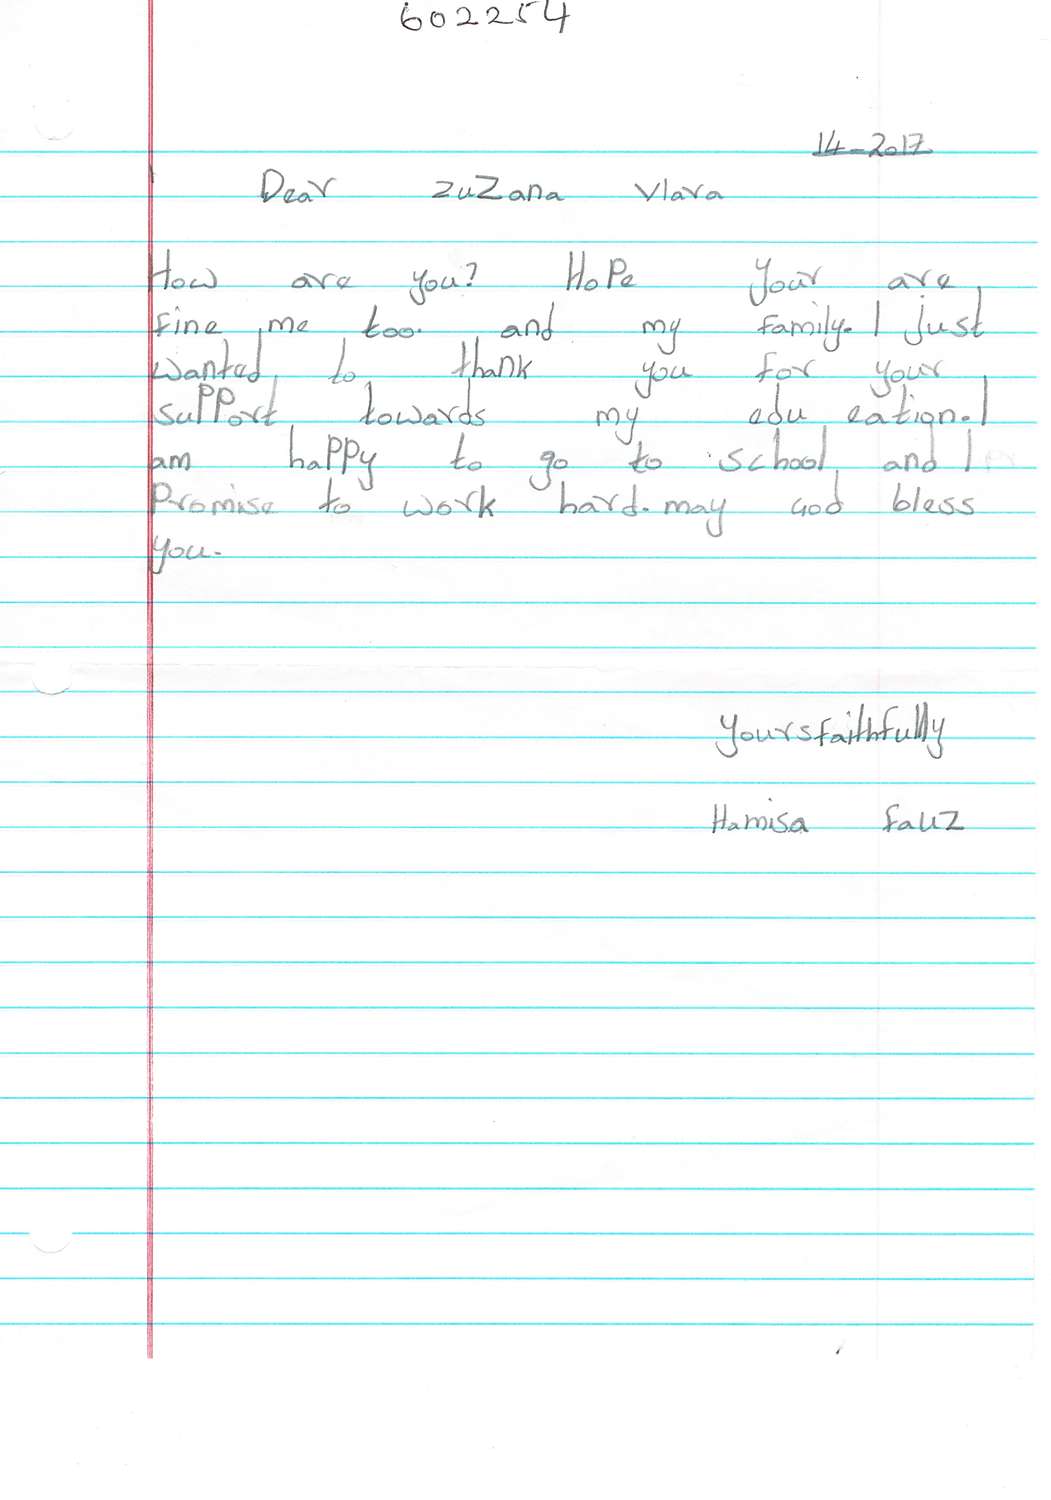 602254
14-2017
Dear zuzana Vlara
How are you? Hope your are
fine me too. and my family. I just
wanted to thank you for your
support towards my edu cation. I
am happy to go to school and I
Promise to work hard. may God bless
you.
yours faithfully
Hamisa fauz